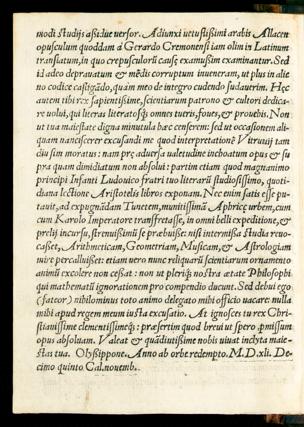 modi studijs assidue versor. Adiunxi uetustissimi arabis Allacen
opusculum quoddam à Gerardo Cremonensi iam olim in Latinum
translatum, in quo crepusculorũ causę examussim examinantur. Sed
id adeo deprauatum & mẽdis corruptum inueneram, ut plus in alie
no codice castigãdo, quàm meo de integro cudendo sudauerim. Hęc
autem tibi rex sapientissime, scientiarum patrono & cultori dedica-
re uolui, qui literas literatosq́; omnes tueris, foues, & prouehis. Non
ut tua maiestate digna minutula hæc censerem: sed ut occasionem ali-
quam nanciscerer excusandi me quod interpretationẽ Vitruuij tam
diu sim moratus: nam pre aduersa ualetudine inchoatum opus & su
pra quam dimidiatum non absolui: partim etiam quod magnanimo
principi Infanti Ludouico fratri tuo literarũ studiosissimo, quoti-
diana lectione Aristotelis libros exponam. Nec enim satis esse pu-
tauit, ad expugnãdam Tunetem, munitissimã Aphricę urbem, cum
cum Karolo Imperatore transfretasse, in omni belli expeditione, &
prelij incursu, strenuissimũ se præbuisse: nisi intermissa studia reuo-
casset, Arithmeticam, Geometriam, Musicam, & Astrologiam
mire percalluisset: etiam uero nunc reliquarũ scientiarum ornamento
animũ excolere non cessat: non ut pleriq; nostra ætate Philosophi
qui mathematũ ignorationem pro compendio ducunt. Sed debui ego
(fateor) nihilominus toto animo delegato mihi officio uacare: nulla
mihi apud regem meum iusta excusatio. At ignosces tu rex Chri-
stianissime clementissimeq́;: præsertim quod breui ut spero, ꝓmissum
opus absoluam. Valeat & quãdiutissime nobis uiuat inclyta maie-
stas tua. Olyssippone. Anno ab orbe redempto. M.D.xli. De-
cimo quinto Cal. nouemb.